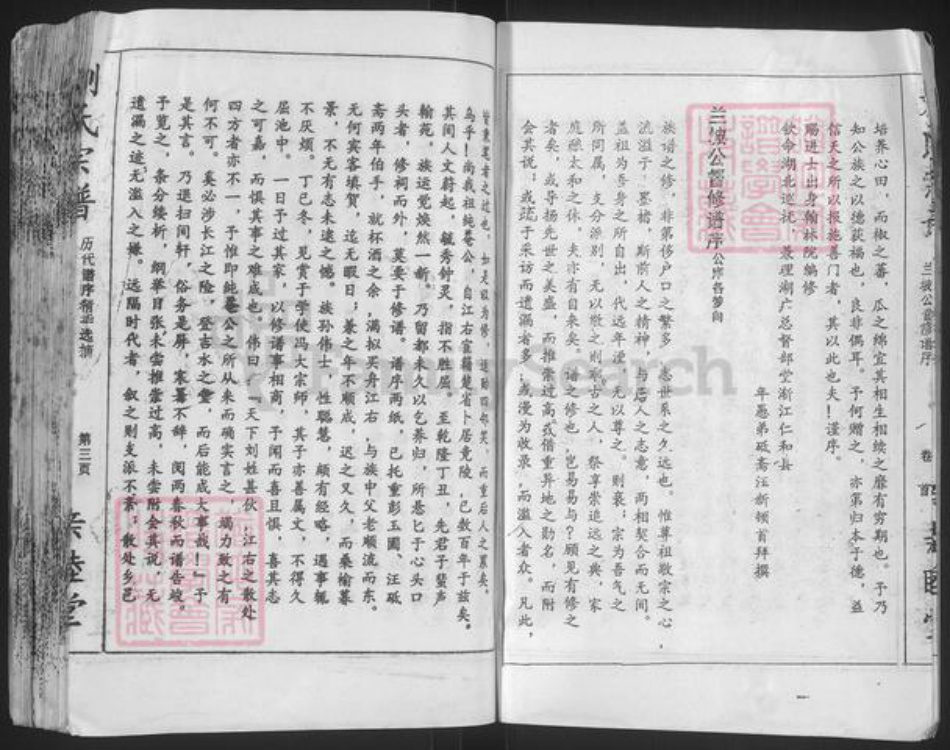 培养心田，而椒之蕃，瓜之绵宜其相生相续之靡有穷期也。予乃
知公族之以德获福也，良非偶耳。予何赠之，亦第归本于德，益
信天之所以报施善门者，其以此也夫！谨序。
赐进士出身翰林院编修
钦命湖北巡抚，兼理湖广总督部堂浙江仁和县
年愚弟砥斋汪新顿首拜撰
兰坡公督修谱序
族谱之修，非第侈户口之繁多，悉世系之久远也。惟尊祖敬宗之心
流溢于 墨楮，斯前人之精神，与后人之志意，两相契合而无间。
盖祖为吾身之所自出，代远年湮，无以尊之。则亵；宗为吾气之
所同属，支分派别，无以敬之则 古之人，祭享崇追远之典，家
庭 太和之休，夫亦有自来矣。谱之修也，岂易易与？顾见有修之
者矣，或导扬先世之美盛，而推崇过高或借重异地之勋名，而附
会其说；或疏于采访而遗漏者多；或漫为收录，而滥入者众。凡此，
皆秉笔者之过也。
乌乎！尚我祖纯菴公，自江右宦籍楚省卜居竟陵，已数百年于兹矣。
其间人文蔚起，毓秀钟灵，指不胜屈。至乾隆丁丑，先君子蜚声
翰苑。族运觉焕然一新。乃留都未久以乞养归，所悬匕于心头口
头者，修祠而外，莫要于修谱。谱序两纸，已托重彭玉圃、汪砥
斋两年伯手，就杯酒之余，满拟买舟江右，与族中父老顺流而东。
无何宾客填贺，迄无暇日；兼之年不顺成，迟之又久，而桑榆暮
景，不无有志未逮之憾。族孙伟士，性聪慧，颇有经略，遇事辄
不厌烦。丁巳冬，见赏于学使冯大宗师，其子亦善属文，不得久
屈池中。一日予过其家，以修谱事相商，予闻而喜且惧，喜其志
之可嘉，而惧其事之难成也。伟曰：“天下刘姓甚伙，江右之散处
四方者亦不一，予惟即纯菴公之所从来而确实言之，竭力致之有
何不可。奚必涉长江之险，登吉水之堂，而后能成大事哉！”予
是其言。乃退扫闲轩，俗务是屏，寒暑不辞，阅两春秋而谱告竣。
予览之，条分缕析，纲举目张未尝推崇过高，未尝附会其说，无
遗漏之迹，无滥入之嫌。远隔时代者，叙之则支派不紊；散处乡邑
刘氏宗谱
历代谱序精华选摘
第三页
亲睦堂
兰坡公督修谱序
卷
首